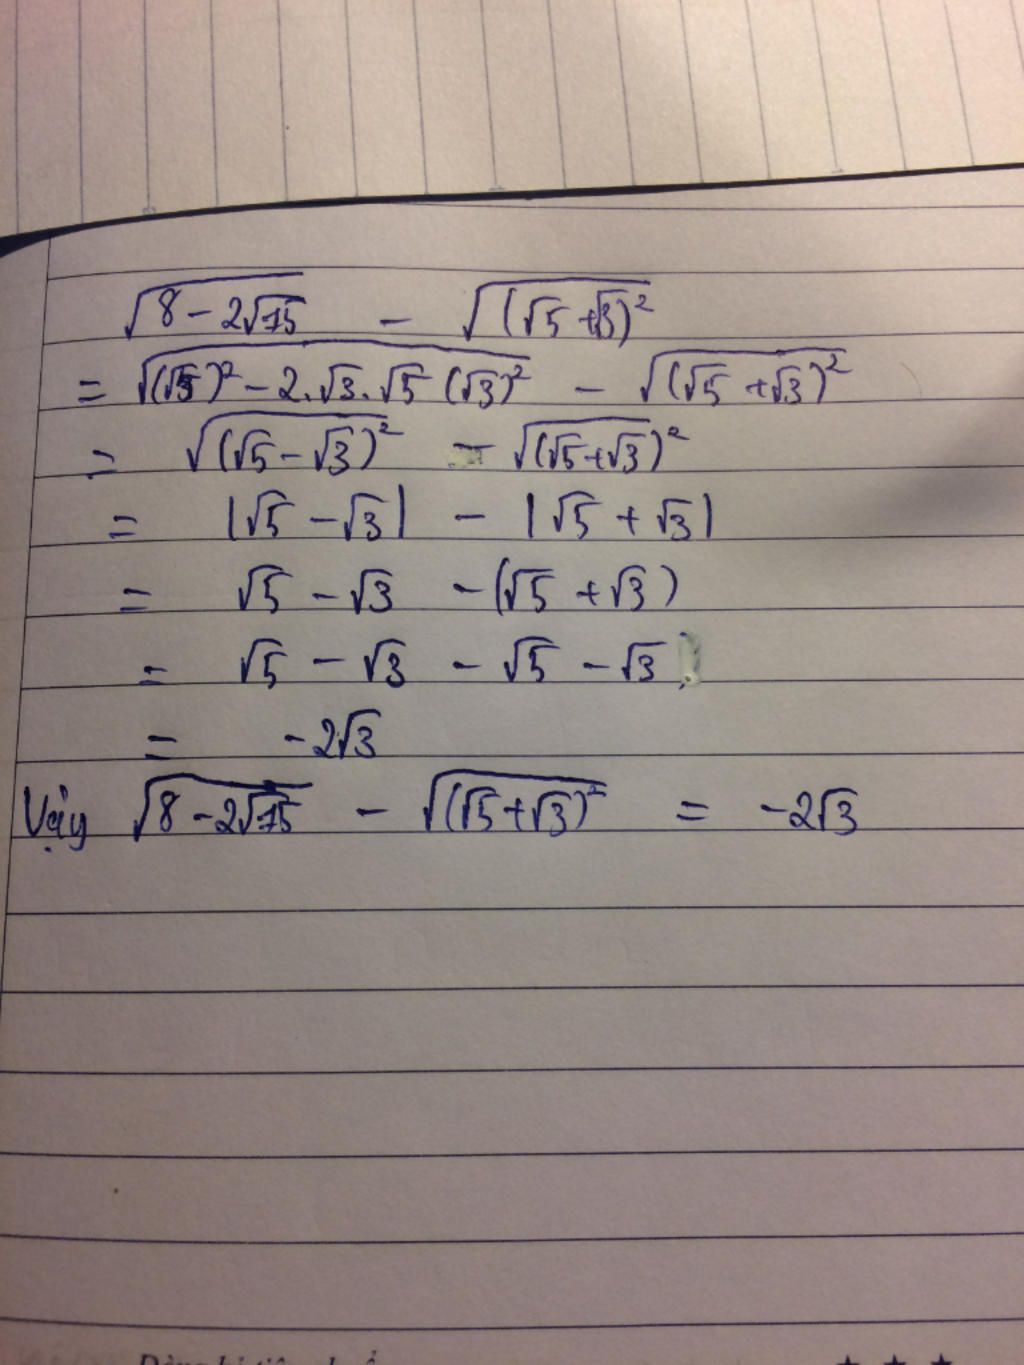 √(8 - 2√15) - √((√5 + √3)²)
= √((√5)² - 2.√3.√5 (√3)²) - √((√5 + √3)²)
= √((√5 - √3)²) - √((√5 + √3)²)
= |√5 - √3| - |√5 + √3|
= √5 - √3 - (√5 + √3)
= √5 - √3 - √5 - √3
= -2√3
Vậy √(8 - 2√15) - √((√5 + √3)²) = -2√3